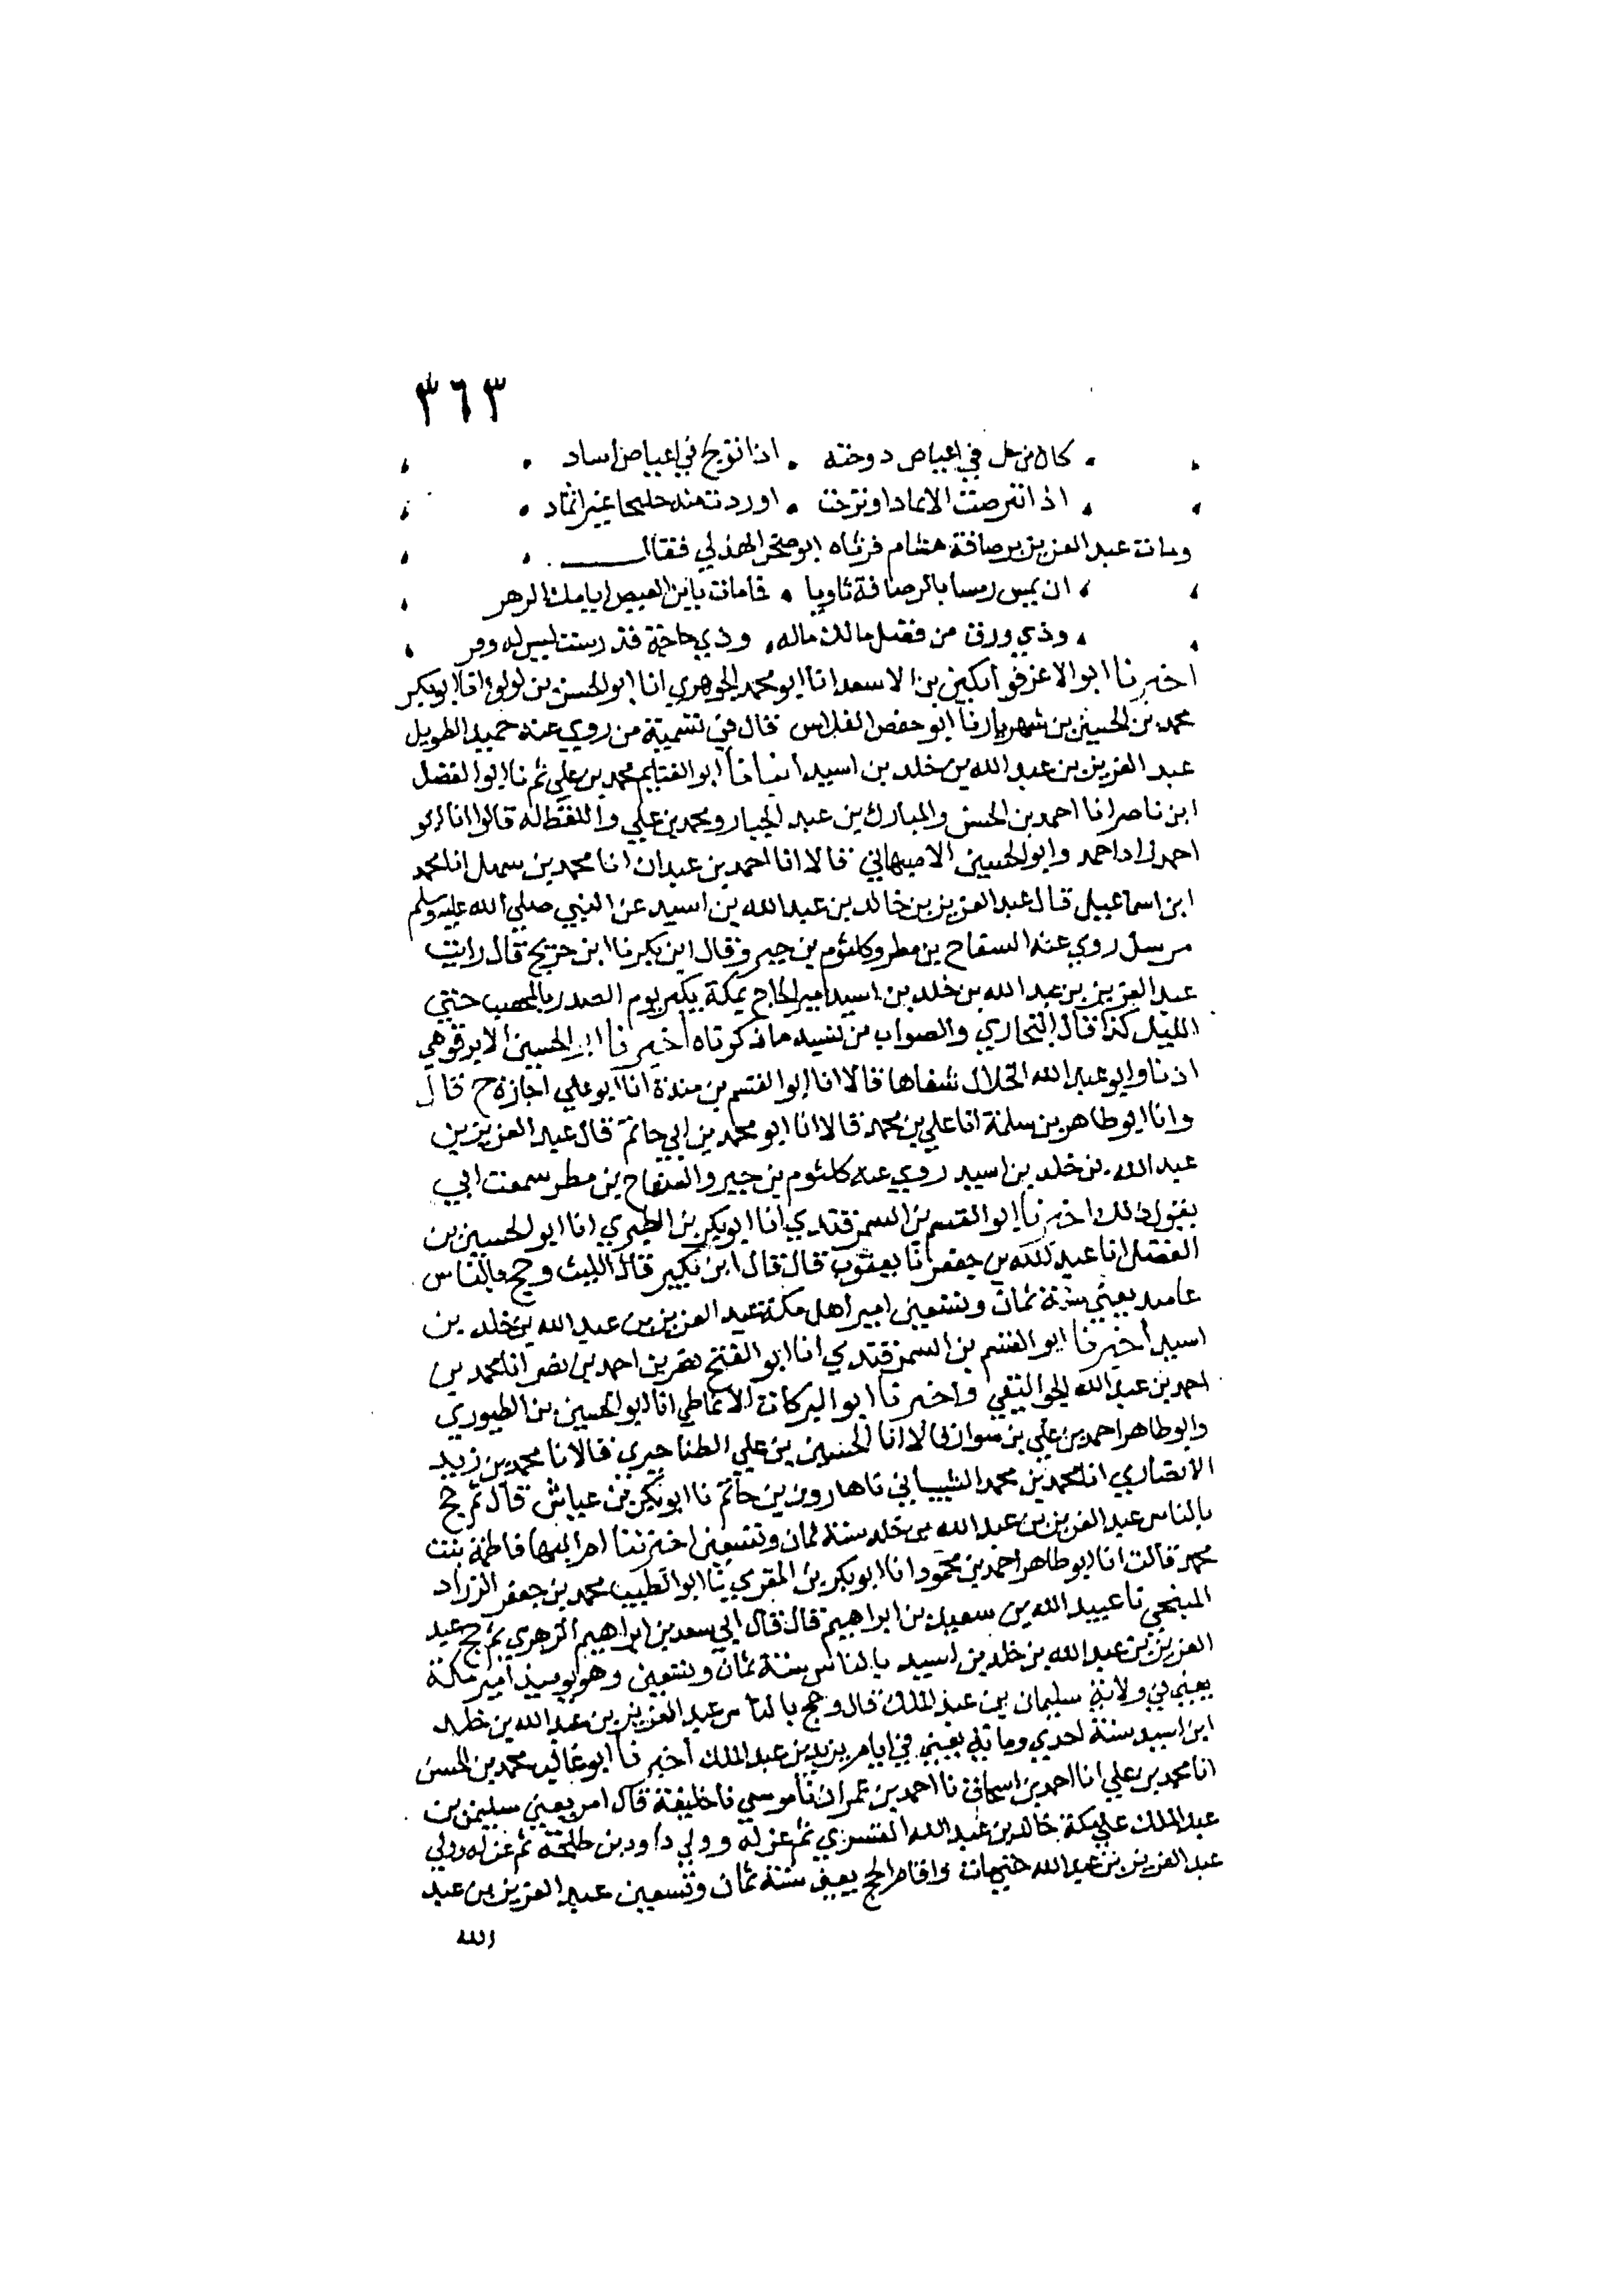 ٣٦٣
كان من حل في اعياص دوحته . اذا توج في اعياص اساد
اذا انتم صت الاعاد او نزحت . اوردت منه خليجا غير اثماد
ومات عبد العزيز برصافة هشام فرثاه ابو صخر الهذلي فقال
ان يمس رمسا بالرصافة ثاويا . فما مات يا بن العيص ايامك الزهر
وذي ورق من فضل مالك ماله . وذي حاجة قد رشت ليس له وفر
اخبرنا ابو الاعز قراتكين بن الاسعد انا ابو محمد الجوهري انا ابو الحسن بن لولو انا ابو بكر
محمد بن الحسين بن شهريار نا ابو حفص الفلاس قال في تسمية من روي عنه حميد الطويل
عبد العزيز بن عبد الله بن خلد بن اسيد انبانا ابو الغنايم محمد بن علي ثم نا ابو الفضل
ابن ناصر انا احمد بن الحسن والمبارك بن عبد الجبار ومحمد بن علي واللفظ له قالوا انا ابو
احمد زاد احمد وابو الحسين الاصبهاني قالا انا احمد بن عبدان انا محمد بن سهل انا محمد
ابن اسماعيل قال عبد العزيز بن خالد بن عبد الله بن اسيد عن النبي صلي الله عليه وسلم
مرسل روي عنه السفاح بن مطر وكلثوم بن جبر وقال ابن بكر نا ابن جريج قال رايت
عبد العزيز بن عبد الله بن خلد بن اسيد امير الحاج بمكة يكبر يوم الصدر بالمحصب حتي
الليل كذا قال البخاري والصواب من نسبه ما ذكرناه اخبرنا ابو الحسين الابرقوهي
اذنا وابو عبد الله الخلال شفاها قالا انا ابو القسم بن مندة انا ابو علي اجازة ح قال
وانا ابو طاهر بن سلمة انا علي بن محمد قالا انا ابو محمد بن ابي حاتم قال عبد العزيز بن
عبد الله بن خلد بن اسيد روي عنه كلثوم بن جبر والسفاح بن مطر سمعت ابي
يقول ذلك اخبرنا ابو القسم بن السمرقندي انا ابو بكر بن الطبري انا ابو الحسين بن
الفضل انا عبد الله بن جعفر نا يعقوب قال قال ابن بكير قال الليث وحج بالناس
عامئذ يعني سنة ثمان وتسعين امير اهل مكة عبد العزيز بن عبد الله بن خلد بن
اسيد اخبرنا ابو القسم بن السمرقندي انا ابو الفتح نصر بن احمد بن نصر انا محمد بن
احمد بن عبد الله الجواليقي واخبرنا ابو البركات الانماطي انا ابو الحسين بن الطيوري
وابو طاهر احمد بن علي بن سوار قالا انا الحسين بن علي الطناجيري قالا نا محمد بن زيد
الانصاري انا محمد بن محمد الشيباني نا هارون بن حاتم نا ابو بكر بن عياش قال ثم حج
بالناس عبد العزيز بن عبد الله بن خلد سنة ثمان وتسعين اخبرتنا ام البها فاطمة بنت
محمد قالت انا ابو طاهر احمد بن محمود انا ابو بكر بن المقري نا ابو الطيب محمد بن جعفر الزراد
المنبجي نا عبيد الله بن سعيد بن ابراهيم قال قال ابي سعد بن ابراهيم الزهري ثم حج عبد
العزيز بن عبد الله بن خلد بن اسيد بالناس سنة ثمان وتسعين وهو يوميذ امير مكة
يعني في ولاية سليمان بن عبد الملك قال وحج بالناس عبد العزيز بن عبد الله بن خلد
ابن اسيد سنة احدي وماية يعني في ايام يزيد بن عبد الملك اخبرنا ابو غالب محمد بن الحسن
انا محمد بن علي انا احمد بن اسحاق نا احمد بن عمران نا موسي نا خليفة قال امر يعني سليمن بن
عبد الملك علي مكة خالد بن عبد الله القسري ثم عزله وولي داود بن طلحة ثم عزله وولي
عبد العزيز بن عبد الله حتي مات واقام الحج يعني سنة ثمان وتسعين عبد العزيز بن عبد
الله